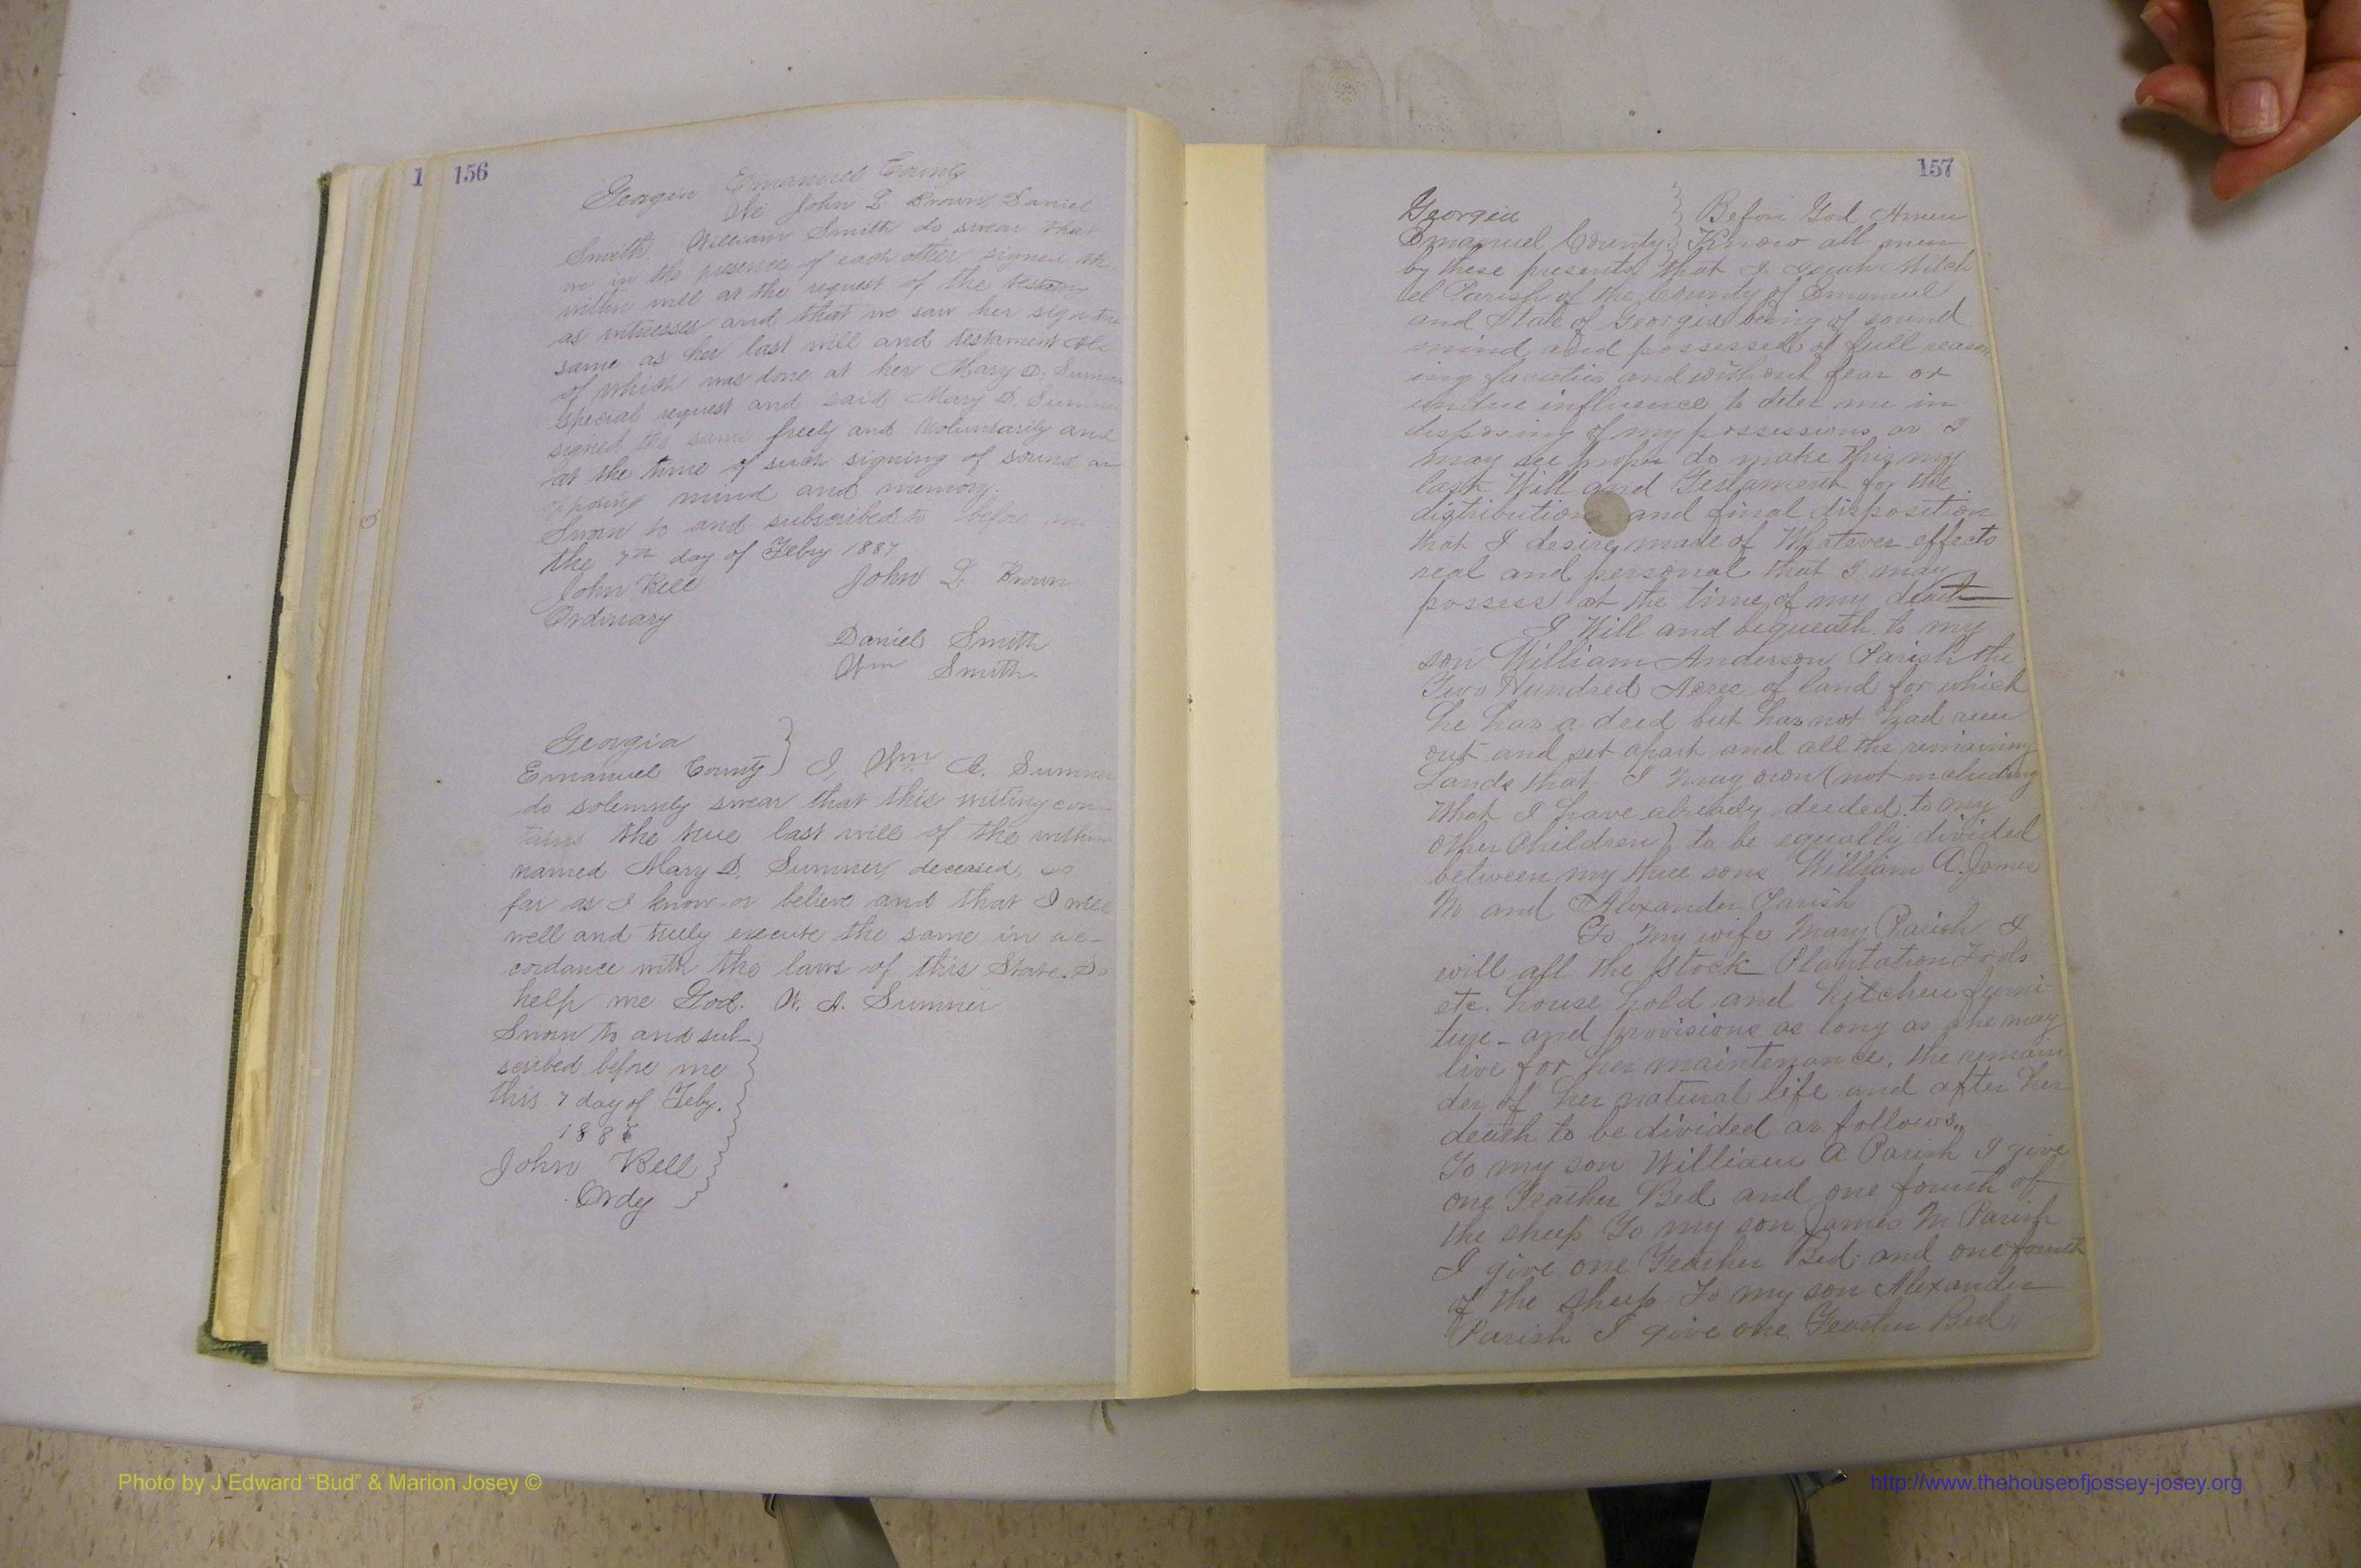 1 156
Georgia Emanuel County
We John L. Brown, Daniel
Smith, William Smith do swear that
we in the presence of each other signed the
within will at the request of the
as witnesses and that we saw her sign the
same as her last will and testament
of which was done at her Mary D. Sumner
special request and said Mary D. Sumner
signed the same freely and voluntarily and
at the time of such signing of sound an
mind and memory.
Sworn to and subscribed to before me
the 7th day of Febry 1887
John Bell John L. Brown
Ordinary
Daniel Smith
Wm Smith.
Georgia
Emanuel County } I, Wm A. Sumner
do solemnly swear that this writing con-
tains the true last will of the within
named Mary D. Sumner, deceased, so
far as I know or believe and that I will
well and truly execute the same in ac-
cordance with the laws of this State. So
help me God. W. A. Sumner
Sworn to and sub-
scribed before me
this 7 day of Feby.
188
John Bell
Ordy
157
Georgia } Before God Amen
Emanuel County } Know all men
by these presents that I Mitch
el Parish of the County of Emanuel
and State of Georgia being of sound
mind and possessed of full reason
ing faculties and without fear or
undue influence to deter me in
disposing of my possessions as I
may see proper do make this my
last Will and Testament for the
distribution and final disposition
that I desire made of Whatever effects
real and personal that I may
possess at the time of my death
I Will and bequeath to my
son William Anderson Parish the
Two Hundred Acres of land for which
he has a deed but has not had run
out and set apart and all the remaining
Lands that I may own (not including
What I have already deeded to my
other Children) to be equally divided
between my three sons William A. James
M and Alexander Parish
To my wife Mary Parish I
will all the stock Plantation Tools
etc. house hold and kitchen furni
ture - and provisions as long as she may
live for her maintenance, the remain
der of her natural life and after her
death to be divided as follows..
To my son William A Parish I give
one Feather Bed and one fourth of
the sheep To my son James M Parish
I give one Feather Bed and one fourth
of the sheep To my son Alexander
Parish I give one Feather Bed.
Photo by J Edward “Bud” & Marion Josey ©
http://www.thehouseofjossey-josey.org